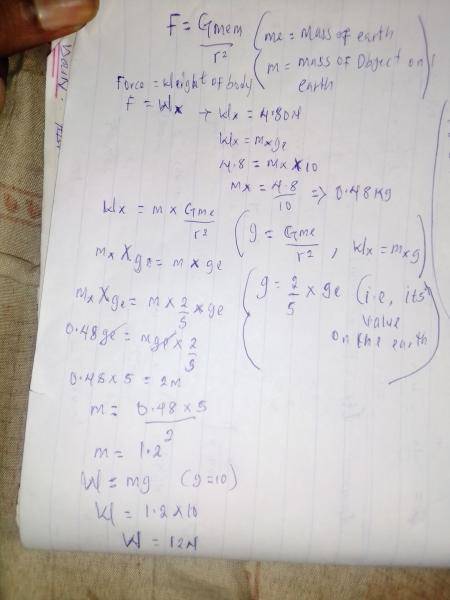 F = Gmem / r²
(me = mass of earth
m = mass of Object on earth)
Force = Weight of body
F = Wx → Wx = 4.80N
Wx = mxge
4.8 = mx × 10
mx = 4.8 / 10 => 0.48kg
Wx = m × Gme / r²
(g = Gme / r² , Wx = mxg)
mx × ge = m × ge
(g = 2/5 × ge (i.e, its value on the earth)
mx × ge = m × 2/5 × ge
0.48ge = mge × 2/5
0.48 × 5 = 2m
m = 0.48 × 5 / 2
m = 1.2
W = mg (g = 10)
W = 1.2 × 10
W = 12N